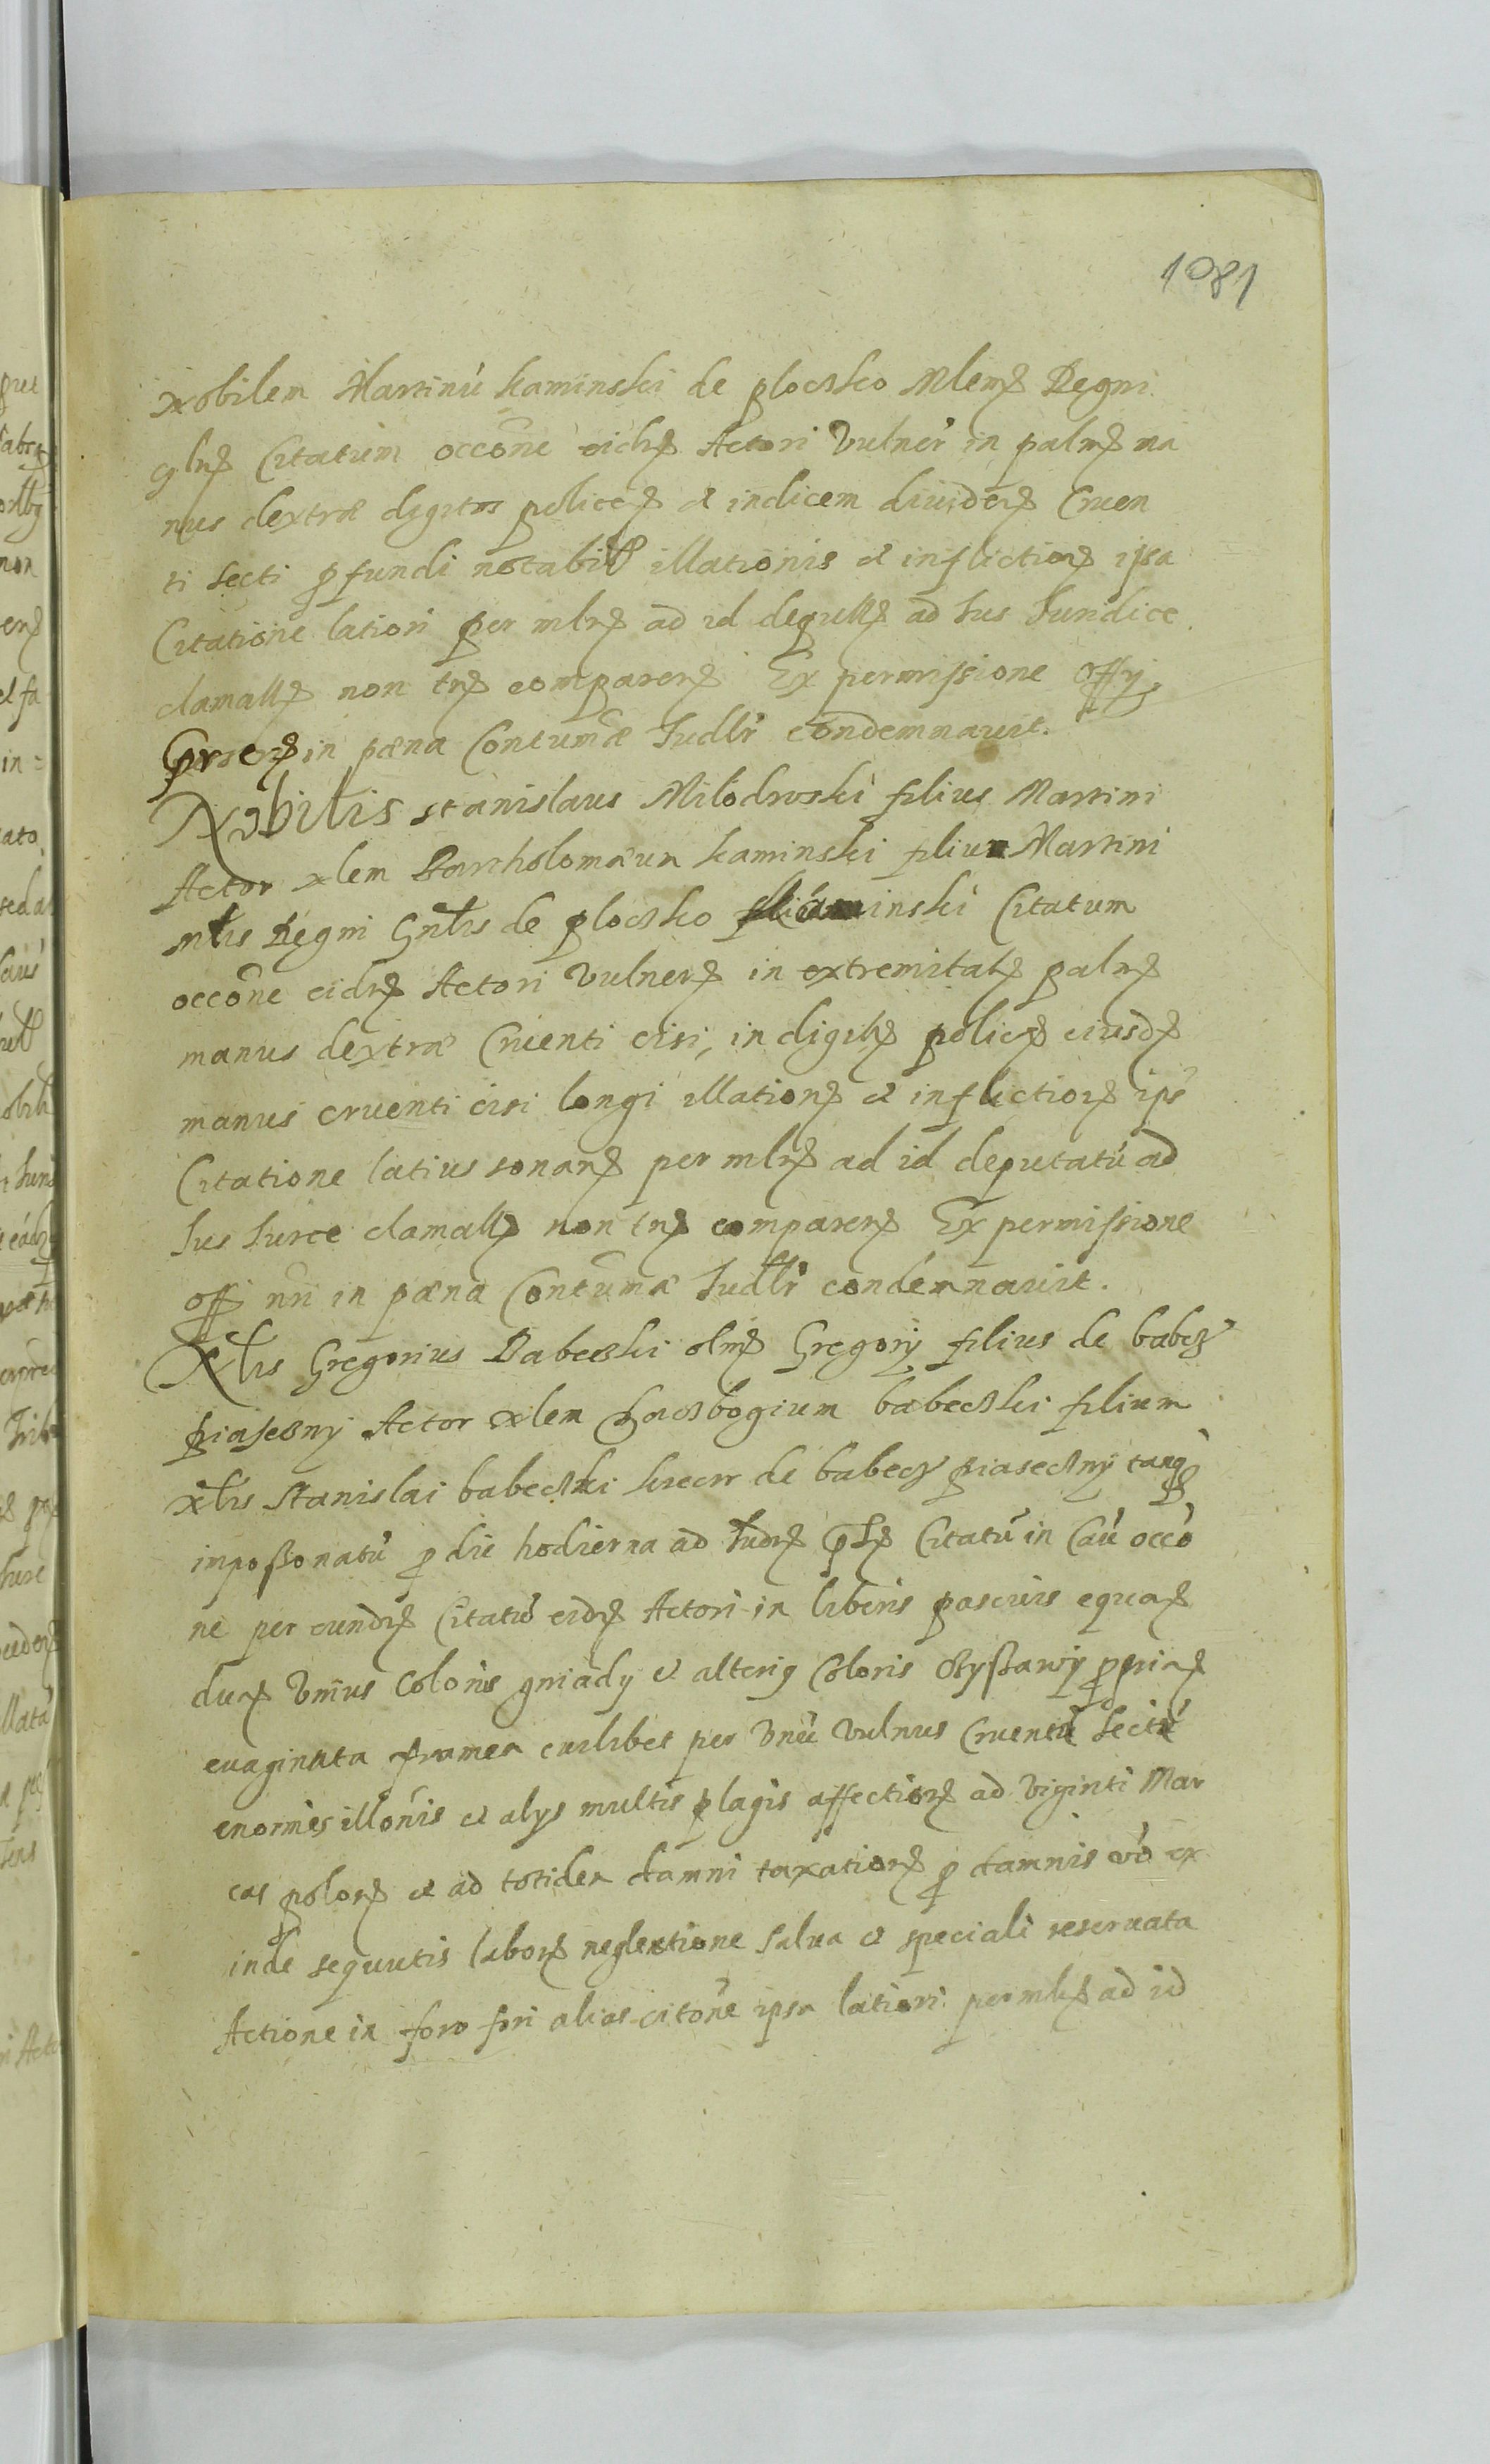 1081
Nobilem Martinú kaminski de płocsko Mlem Regni
glnem Citatum occone eidem Actori Vulner in palmam ma
nus dextræ digitos policem et indicem diuiden Cruen
ti Secti profundi notabil illationis et infliction ipsa
Citatione latiori per mlrem ad id deputt ad Ius Iuridice
clamatt non tn comparen Ex permissione Offy
in pœna Contumæ Iudlr condemnauit.
Nobilis Stanislaus Milodroski filius Martini
Actor Nlem Bartholomæum kaminski filium Martini
Mlis Regni Gnlis de płocsko kaminski Citatum
occone eidem Actori Vulner in extremitate palmæ
manus dextræ Cruenti cisi, in digito police eiusdem
manus cruenti cisi longi illation et infliction ips
Citatione latius sonan per mlrem ad id deputatú ad
Ius Iurce clamatt non tn comparen Ex permissione
off nri in pœna Contumæ Iudlr condemnauit.
Nlis Gregorius Babecski olim Gregory filius de babecz
piaseczny Actor Nlem babecski filium
Nlis Stanislai babecski de babecz piasecsny tanq
impossonatú pro die hodierna ad Iudm Citatú in Caú occo
ne per eundem Citatú eidem Actori in liberis pascuis equar
duar Vnius Coloris gniady et alterius Coloris propriar
euaginata framea cuilibet per Vnú Vulnus Cruentú Sectú
enormes illonis et alys multis plagis affection ad Viginti Mar
cas polon et ad totidem damni taxation pro damnis vo ex
inde sequutis labor neglectione Salua et speciali reseruata
Actione in foro fori alias citone ipsa latiori per mlrem ad id